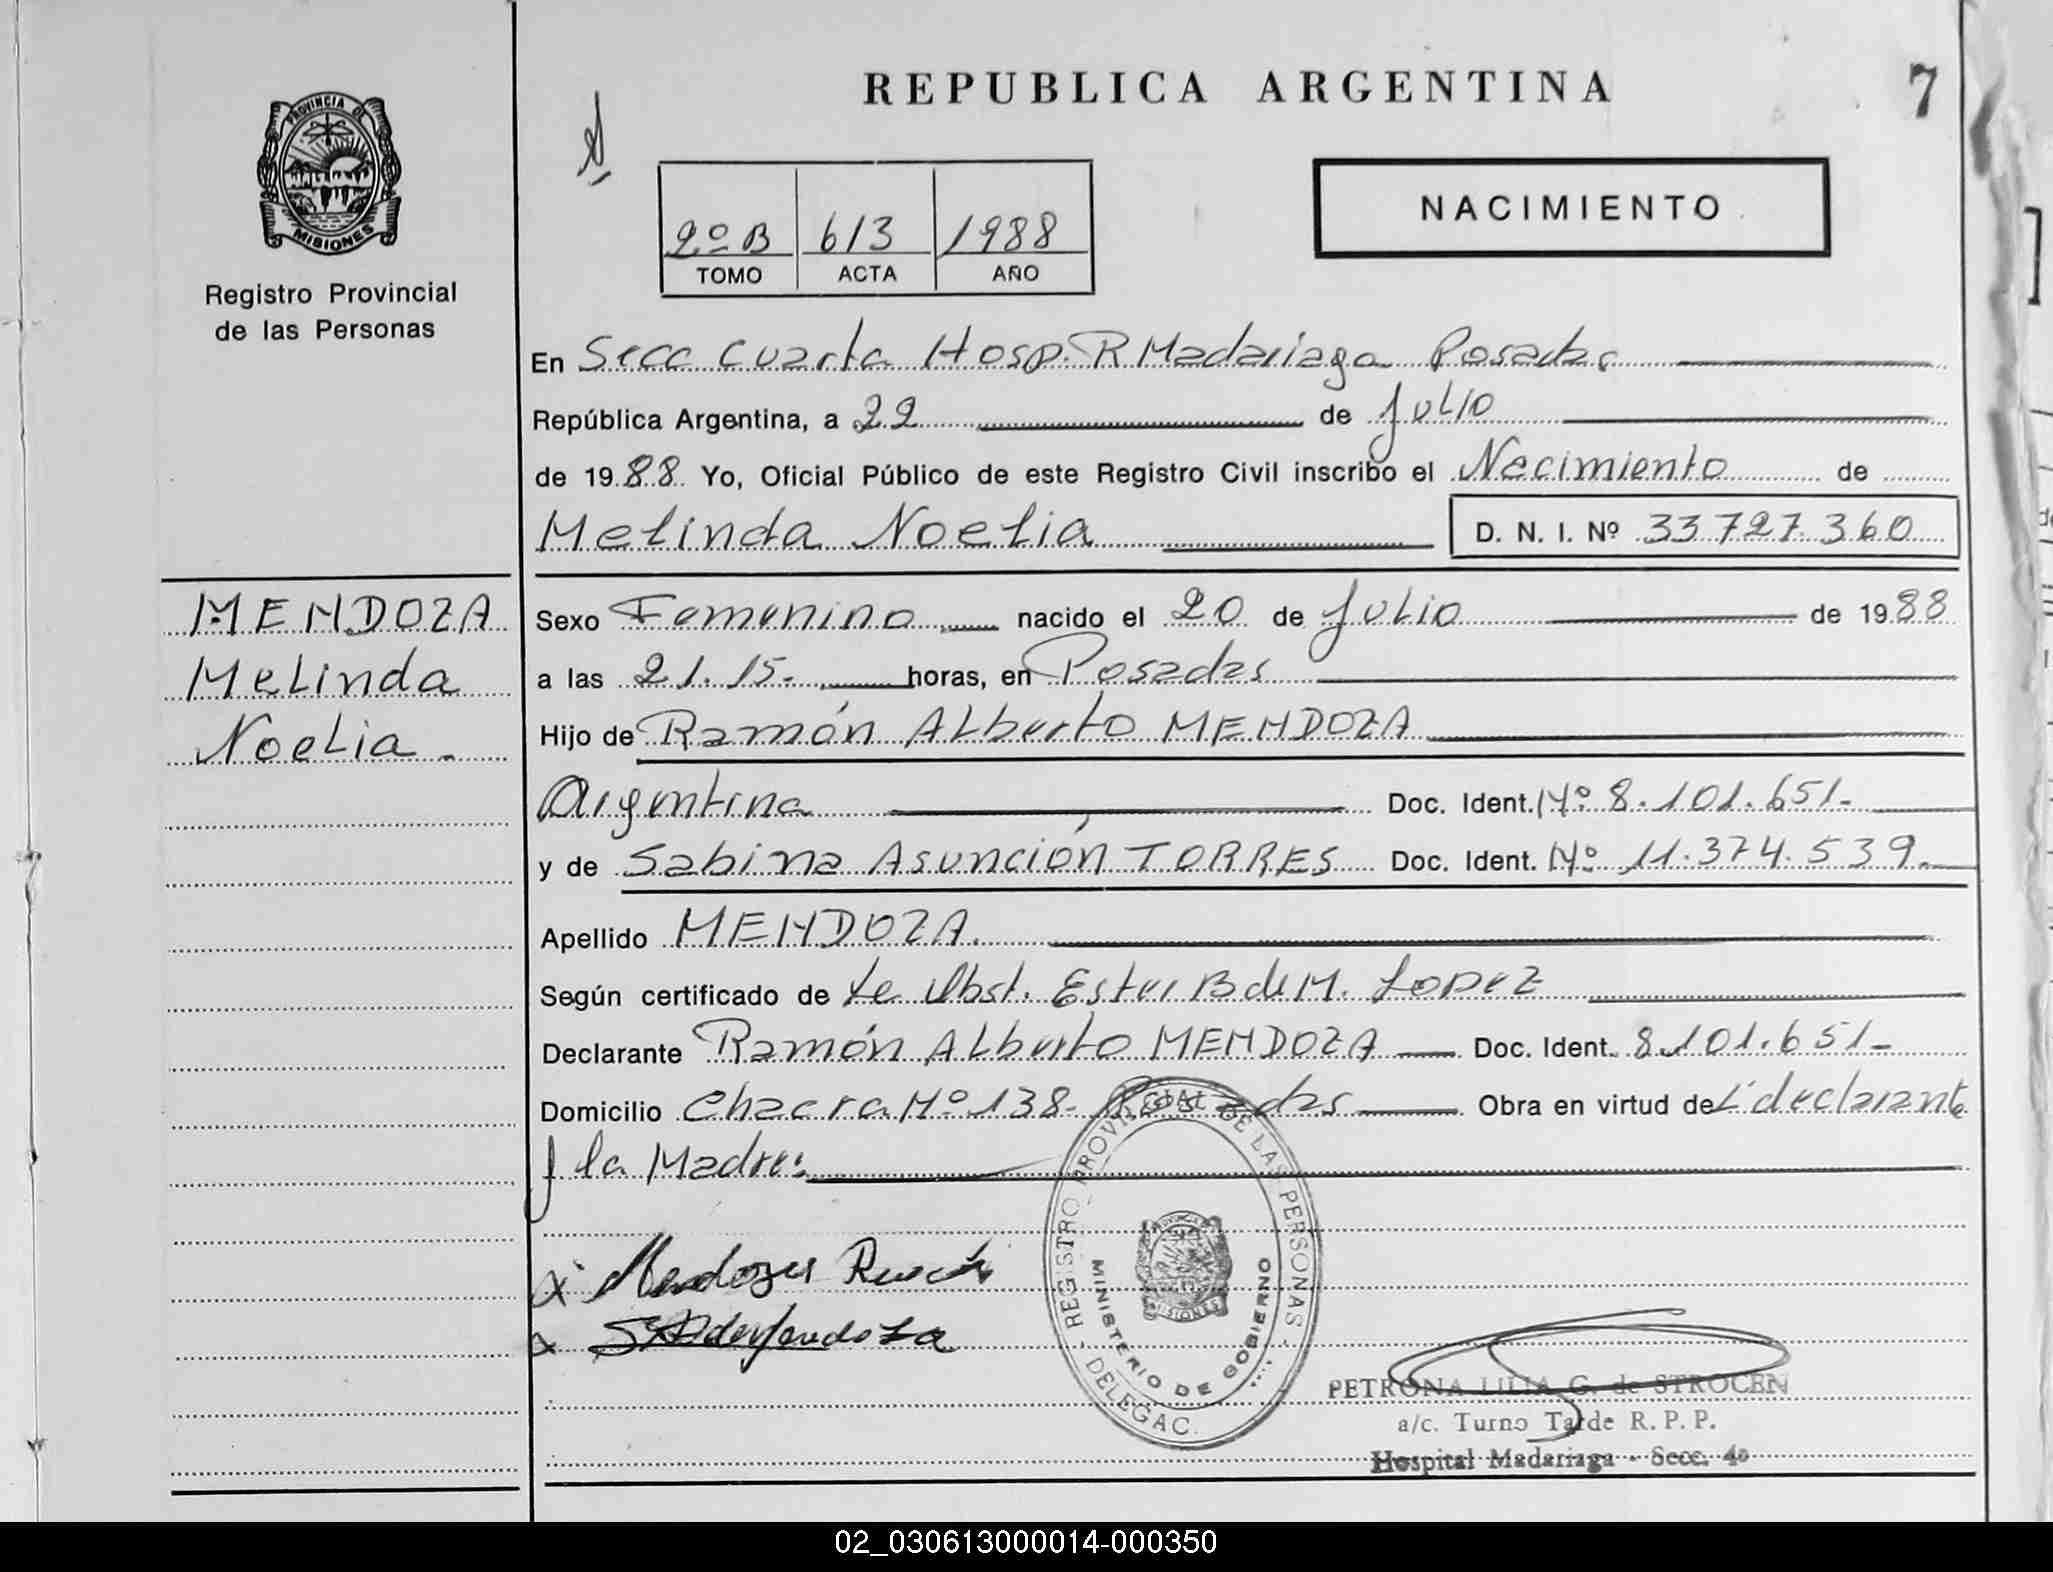 REPUBLICA ARGENTINA
7
PROVINCIA DE MISIONES
Registro Provincial
de las Personas
2º B 613 1988
TOMO ACTA AÑO
NACIMIENTO
En Secc Cuarta Hosp. R Madariaga Posadas
República Argentina, a 22 de Julio
de 1988 Yo, Oficial Público de este Registro Civil inscribo el Nacimiento de
Melinda Noelia D. N. I. Nº 33.727.360
MENDOZA
Melinda
Noelia.
Sexo Femenino nacido el 20 de Julio de 1988
a las 21.15. horas, en Posadas
Hijo de Ramón Alberto MENDOZA
Argentina Doc. Ident. Nº 8.101.651.
y de Sabina Asunción TORRES Doc. Ident. Nº 11.374.539.
Apellido MENDOZA.
Según certificado de Obst. Ester B de M. Lopez
Declarante Ramón Alberto MENDOZA Doc. Ident. 8.101.651.
Domicilio Chacra Nº 138. Posadas Obra en virtud de declarante
y la Madre:
REGISTRO PROVINCIAL DE LAS PERSONAS
MINISTERIO DE GOBIERNO
MISIONES
DELEGAC.
x Mendoza Ramón
x
PETRONA LILIA G. de STROCEN
a/c. Turno Tarde R. P. P.
Hospital Madariaga - Secc. 4º
02_030613000014-000350